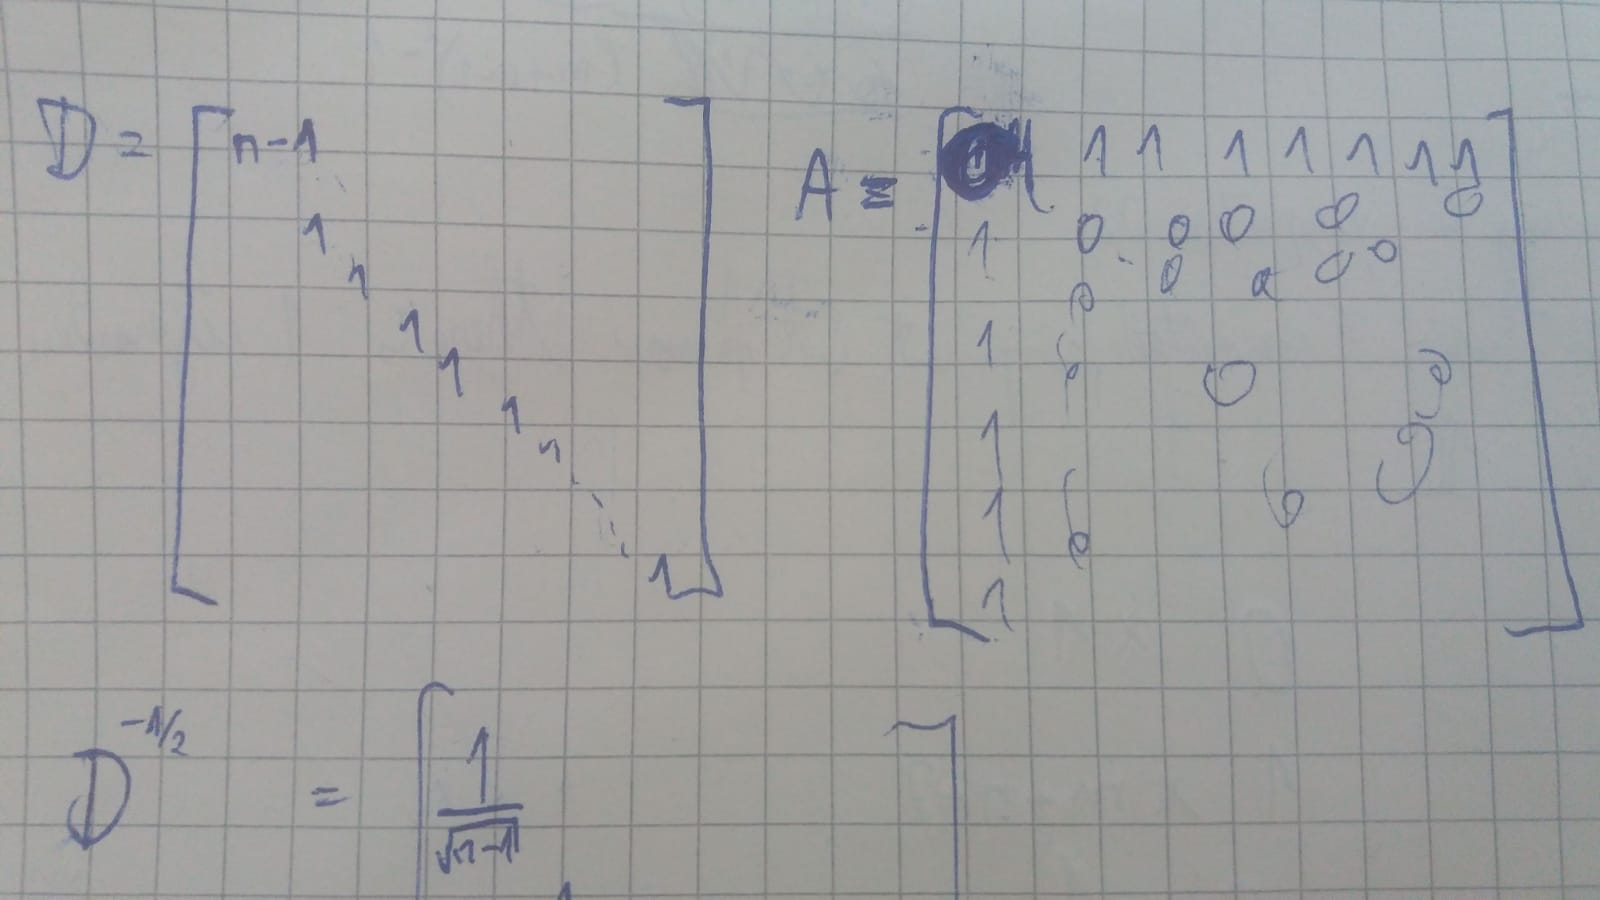 D = [ n-1
1
1
1
1
1
1
1 ]
A = [ 1 1 1 1 1 1 1
1 0 0 0 0 0
0 0 0 0
1 0 0 0
1
1 0 0
1 ]
D^{-1/2} = [ 1/√(n-1) ]